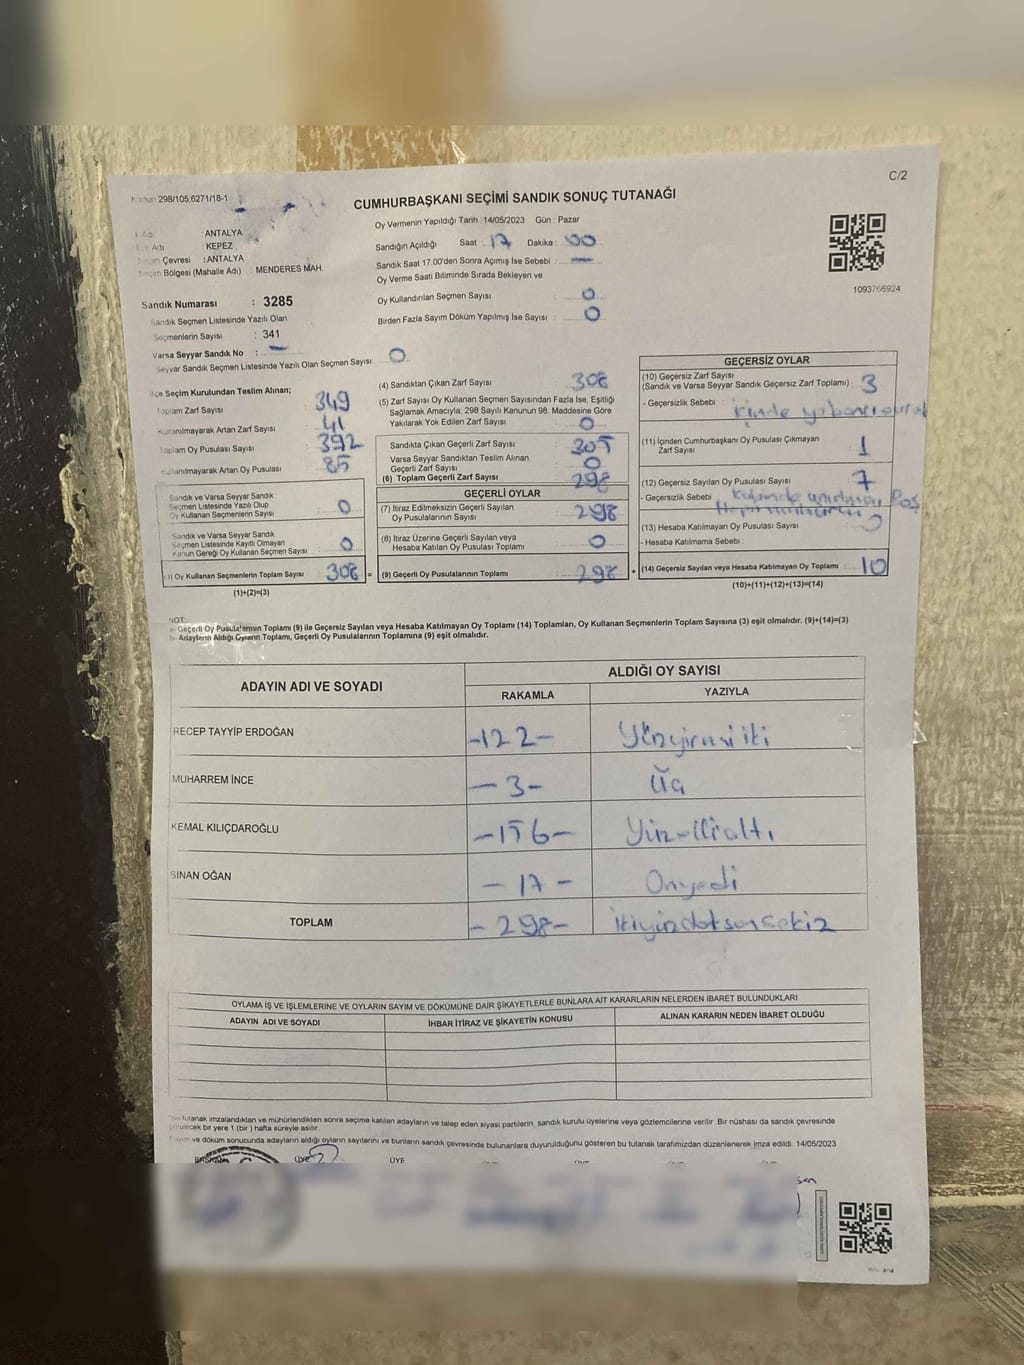 C/2
298/105,6271/18-1
CUMHURBAŞKANI SEÇİMİ SANDIK SONUÇ TUTANAĞI
Oy Vermenin Yapıldığı Tarih :14/05/2023 Gün : Pazar
Adı : ANTALYA
Adı : KEPEZ
Çevresi : ANTALYA
Bölgesi (Mahalle Adı) : MENDERES MAH.
Sandığın Açıldığı Saat 17 Dakika : 00
Sandık Saat 17.00'den Sonra Açımış İse Sebebi : —
Oy Verme Saati Bitiminde Sırada Bekleyen ve
Oy Kullandırılan Seçmen Sayısı : 0
Birden Fazla Sayım Döküm Yapılmış İse Sayısı : 0
1093765924
Sandık Numarası : 3285
Sandık Seçmen Listesinde Yazılı Olan
Seçmenlerin Sayısı : 341
Varsa Seyyar Sandık No : —
Seyyar Sandık Seçmen Listesinde Yazılı Olan Seçmen Sayısı: 0
İlçe Seçim Kurulundan Teslim Alınan;
Toplam Zarf Sayısı 349
Kullanılmayarak Artan Zarf Sayısı : 41
Toplam Oy Pusulası Sayısı : 392
Kullanılmayarak Artan Oy Pusulası : 85
Sandık ve Varsa Seyyar Sandık
Seçmen Listesinde Yazılı Olup
Oy Kullanan Seçmenlerin Sayısı : 0
Sandık ve Varsa Seyyar Sandık
Seçmen Listesinde Kayıtlı Olmayan
Kanun Gereği Oy Kullanan Seçmen Sayısı : 0
Oy Kullanan Seçmenlerin Toplam Sayısı 308 =
(1)+(2)=(3)
(4) Sandıktan Çıkan Zarf Sayısı : 308
(5) Zarf Sayısı Oy Kullanan Seçmen Sayısından Fazla İse, Eşitliği
Sağlamak Amacıyla, 298 Sayılı Kanunun 98. Maddesine Göre
Yakılarak Yok Edilen Zarf Sayısı : 0
Sandıkta Çıkan Geçerli Zarf Sayısı : 305
Varsa Seyyar Sandıktan Teslim Alınan
Geçerli Zarf Sayısı : 0
(6) Toplam Geçerli Zarf Sayısı : 298
GEÇERLİ OYLAR
(7) İtiraz Edilmeksizin Geçerli Sayılan
Oy Pusulalarının Sayısı : 298
(8) İtiraz Üzerine Geçerli Sayılan veya
Hesaba Katılan Oy Pusulası Toplamı : 0
(9) Geçerli Oy Pusulalarının Toplamı : 298 +
GEÇERSİZ OYLAR
(10) Geçersiz Zarf Sayısı
(Sandık ve Varsa Seyyar Sandık Geçersiz Zarf Toplamı) : 3
- Geçersizlik Sebebi : içinde yabancı
(11) İçinden Cumhurbaşkanı Oy Pusulası Çıkmayan
Zarf Sayısı : 1
(12) Geçersiz Sayılan Oy Pusulası Sayısı : 7
- Geçersizlik Sebebi
(13) Hesaba Katılmayan Oy Pusulası Sayısı :
- Hesaba Katılmama Sebebi :
(14) Geçersiz Sayılan veya Hesaba Katılmayan Oy Toplamı : 10
(10)+(11)+(12)+(13)=(14)
NOT:
Geçerli Oy Pusulalarının Toplamı (9) ile Geçersiz Sayılan veya Hesaba Katılmayan Oy Toplamı (14) Toplamları, Oy Kullanan Seçmenlerin Toplam Sayısına (3) eşit olmalıdır. (9)+(14)=(3)
Adayların Aldığı Oyların Toplamı, Geçerli Oy Pusulalarının Toplamına (9) eşit olmalıdır.
ADAYIN ADI VE SOYADI ALDIĞI OY SAYISI
RAKAMLA YAZIYLA
RECEP TAYYİP ERDOĞAN -122- Yüzyirmiiki
MUHARREM İNCE -3- Üç
KEMAL KILIÇDAROĞLU -156- Yüzellialtı
SİNAN OĞAN -17- Onyedi
TOPLAM -298- ikiyüzdoksansekiz
OYLAMA İŞ VE İŞLEMLERİNE VE OYLARIN SAYIM VE DÖKÜMÜNE DAİR ŞİKAYETLERLE BUNLARA AİT KARARLARIN NELERDEN İBARET BULUNDUKLARI
ADAYIN ADI VE SOYADI İHBAR İTİRAZ VE ŞİKAYETİN KONUSU ALINAN KARARIN NEDEN İBARET OLDUĞU
tutanak imzalandıktan ve mühürlendikten sonra seçime katılan adayların ve talep eden siyasi partilerin, sandık kurulu üyelerine veya gözlemcilerine verilir. Bir nüshası da sandık çevresinde
bir yere 1 (bir) hafta süreyle asılır.
ve döküm sonucunda adayların aldığı oyların sayılarını ve bunların sandık çevresinde bulunanlara duyurulduğunu gösteren bu tutanak tarafımızdan düzenlenerek imza edildi. 14/05/2023
BAŞKAN ÜYE ÜYE